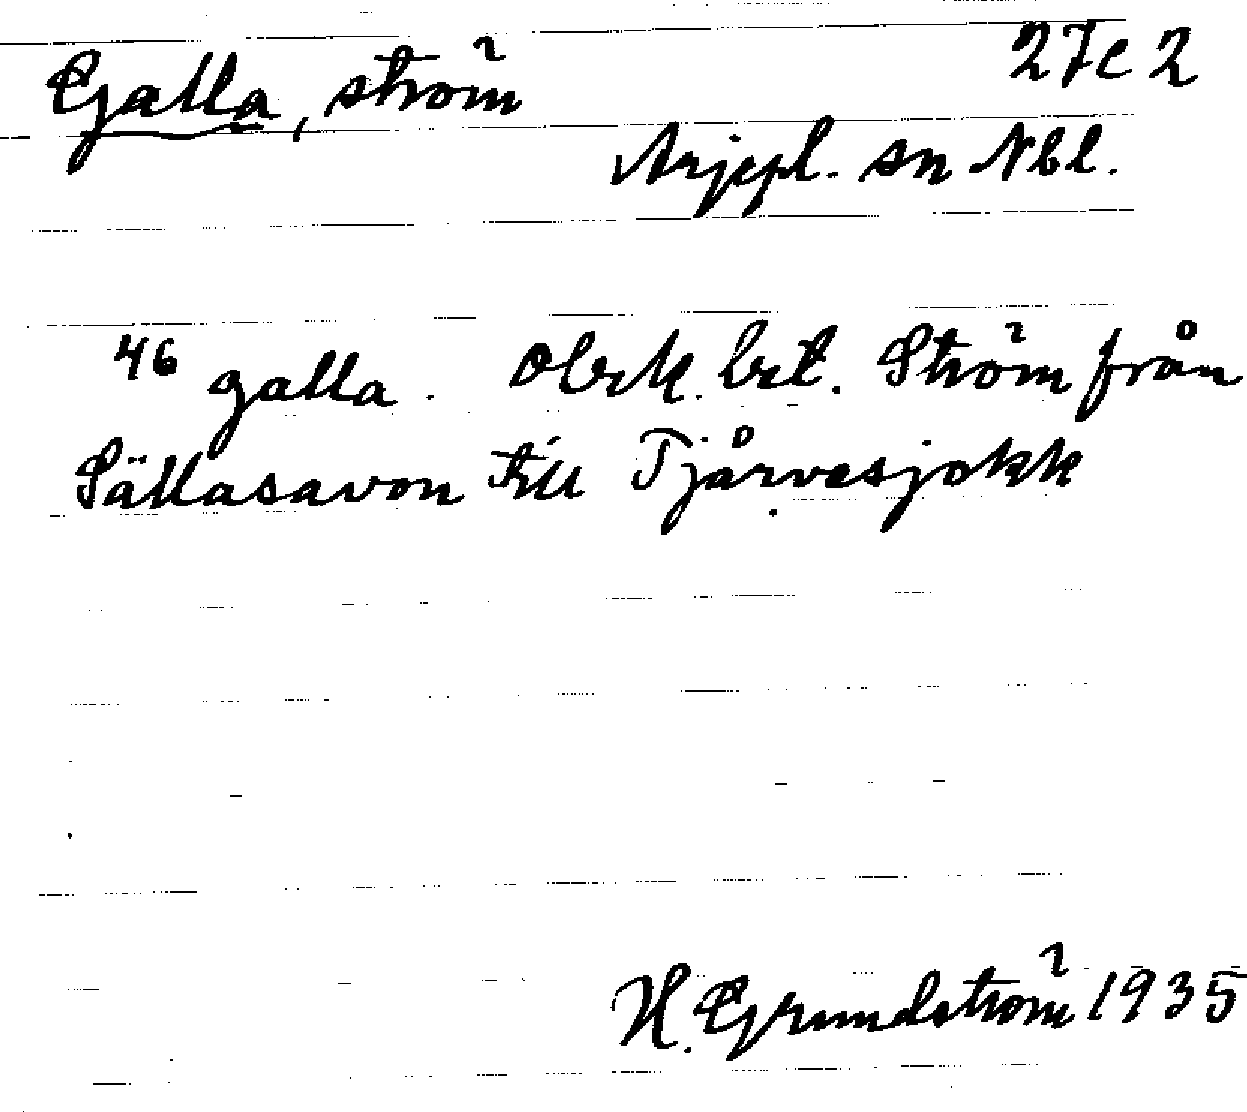 Galla, ström 27c2
Arjepl. sn Nbl.
46 galla. Obek. bet. Ström från
Sällasavon till Tjårvesjokk
H. Grundström 1935